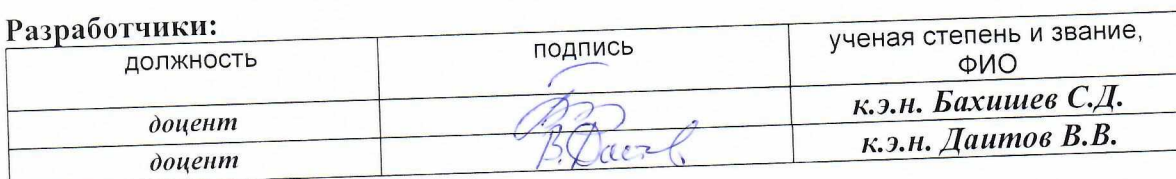 Разработчики:
должность подпись ученая степень и звание,
ФИО
доцент к.э.н. Бахишев С.Д.
доцент В.Даитов к.э.н. Даитов В.В.